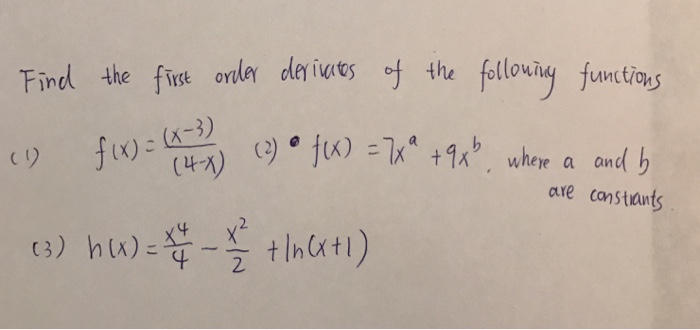 Find the first order derivates of the following functions
(1) f(x) = (x-3)/(4-x) (2) • f(x) = 7x^a + 9x^b, where a and b
are constants
(3) h(x) = x^4/4 - x^2/2 + ln(x+1)